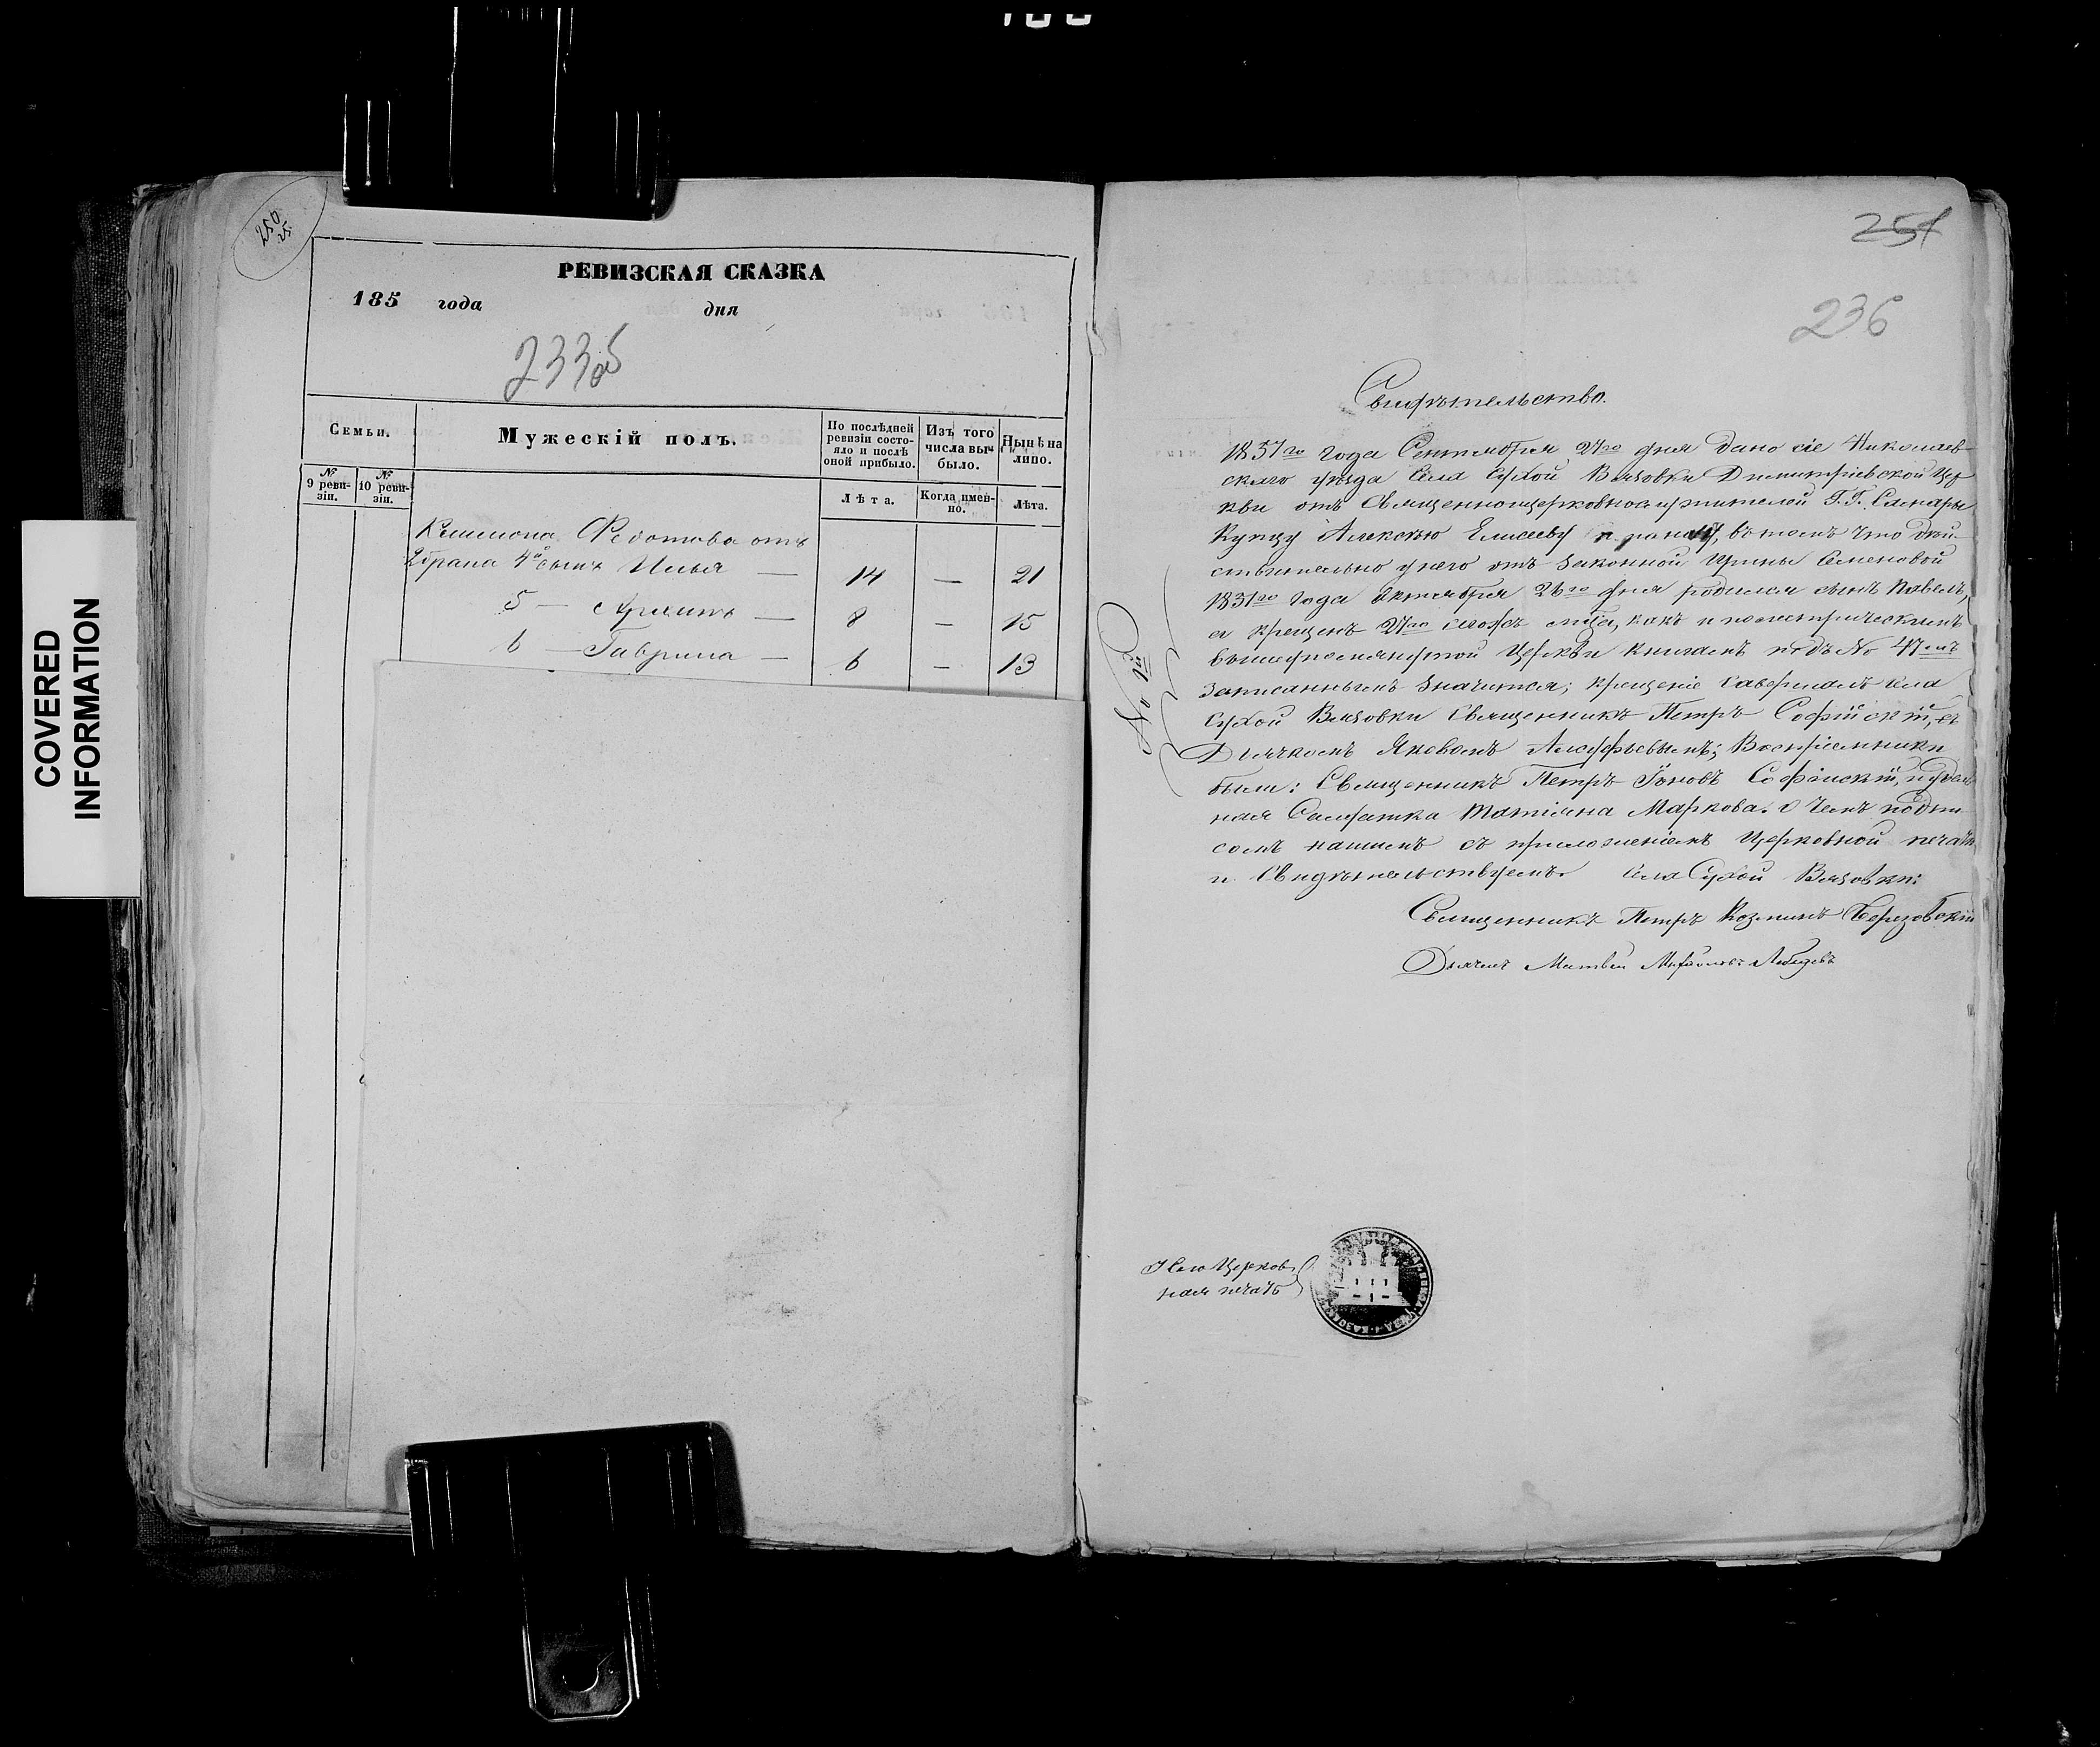 COVERED
INFORMATION
250
РЕВИЗСКАЯ СКАЗКА
185 года дня
233об
Семьи.
Мужескій полъ.
По послѣдней ревизіи состояло и послѣ оной прибыло.
Изъ того числа выбыло.
Нынѣ на лицо.
№ 9 ревизіи.
№ 10 ревизіи.
Лѣта.
Когда именно.
Лѣта.
Филимона Федотова отъ
2 брака 4й сынъ Илья — 14 — 21
5 — Архипъ — 8 — 15
6 — Гаврила — 6 — 13
251
236
Свидѣтельство.
1857го года Сентября 27го дня дано сіе Николаев-
скаго уѣзда села Сухой Вязовки Димитріевской Цер
кви отъ Священноцерковнослужителей Г.Г. Самары
Купцу Алексѣю Елисееву въ томъ что дѣй-
ствительно у него отъ законной Ирины Семеновой
1831го года Октября 26го дня родился сынъ Павелъ,
а крещенъ 27го того же м-ца, какъ и по метрическимъ
вышеупомянутой Церкви книгамъ подъ № 47мъ
записаннымъ значится; крещеніе совершалъ села
Сухой Вязовки Священникъ Петръ Софійскій, съ
Дьячкомъ Яковомъ Алфѣевымъ; Воспріемники
были: Священникъ Петръ Іоновъ Софійскій, и
ная Солдатка Татіяна Маркова. О чемъ подпи
сомъ нашимъ съ приложеніемъ Церковной печати
и Свидѣтельствуемъ. Села Сухой Вязовки:
Священникъ Петръ Козминъ Березовскій
Дьячекъ Матвей Михайловъ Лебедевъ
№ 12й
У сего Церков-
ная печать